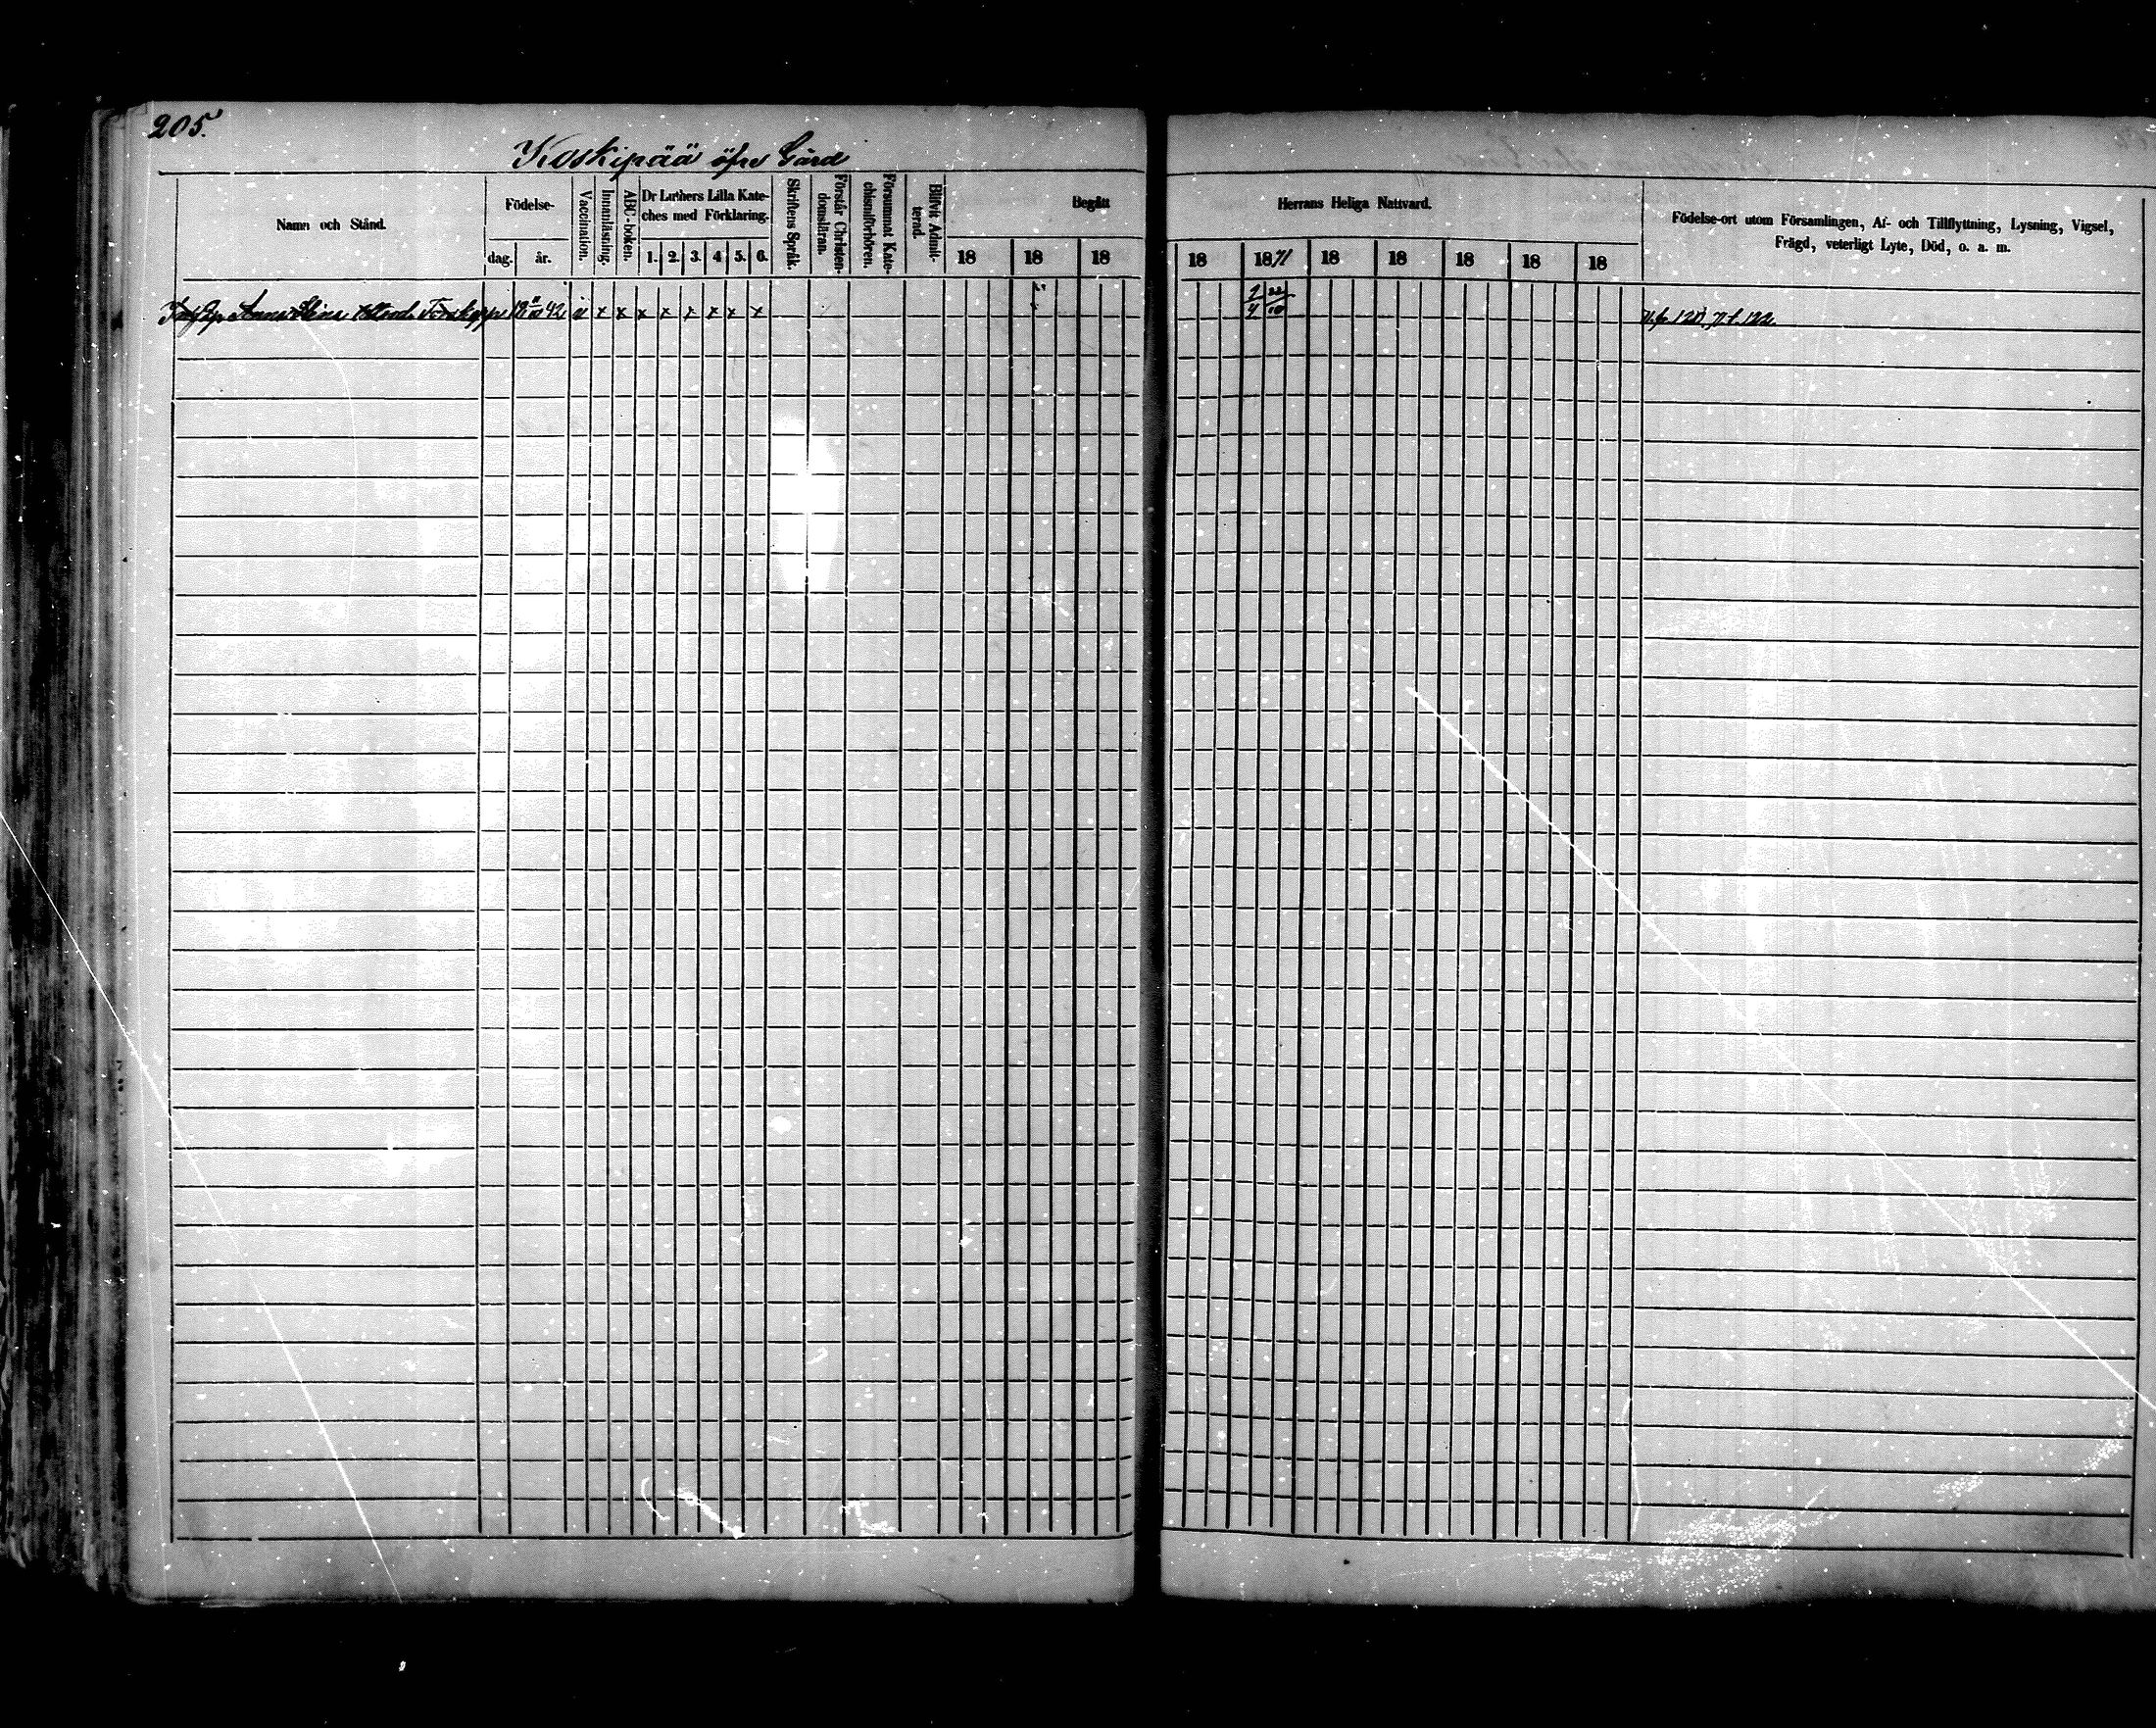 205.
Koskipää öfre Gård
Namn och Stånd.
Födelse-
dag.
år.
Vaccination.
Innanläsning.
ABC-boken.
Dr Luthers Lilla Kate-
ches med Förklaring.
1. 2. 3. 4. 5. 6.
Skriftens Språk.
Förstår Christen-
domsläran.
Försummat Kate-
chismiförhören.
Blifvit Admit-
terad.
Begått
Herrans Heliga Nattvard.
18 18 18 18 1871 18 18 18 18 18
Födelse-ort utom Församlingen, Af- och Tillflyttning, Lysning, Vigsel,
Frägd, veterligt Lyte, Död, o. a. m.
Anna Stina 42 v x x x x x x x x
22/10
122